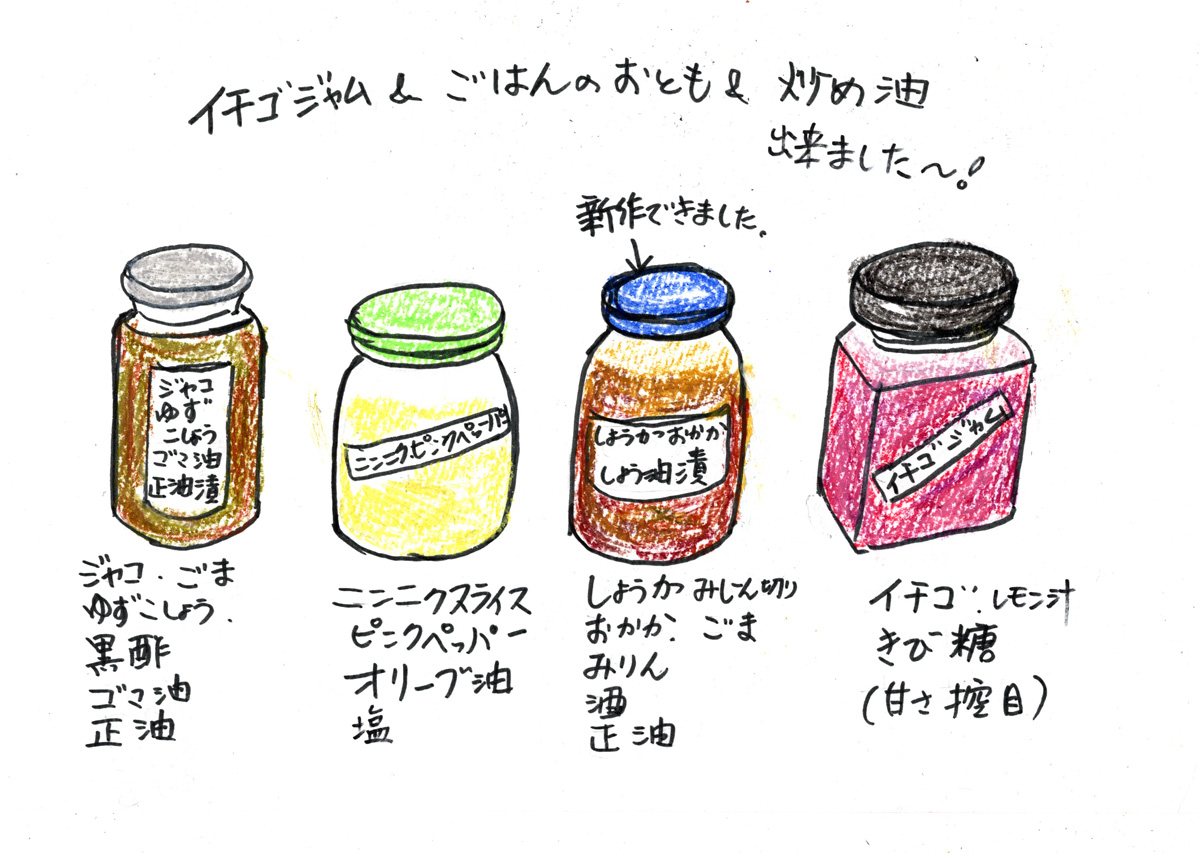 イチゴジャム & ごはんのおとも & 炒め油
出来ました〜!
新作できました。
ジャコ
ゆず
こしょう
ゴマ油
正油漬
ニンニクピンクペッパー
しょうがっおかか
しょう油漬
イチゴジャム
ジャコ・ごま
ゆずこしょう.
黒酢
ゴマ油
正油
ニンニクスライス
ピンクペッパー
オリーブ油
塩
しょうがみじん切り
おかか. ごま
みりん
酒
正油
イチゴ. レモン汁
きび糖
(甘さ控目)